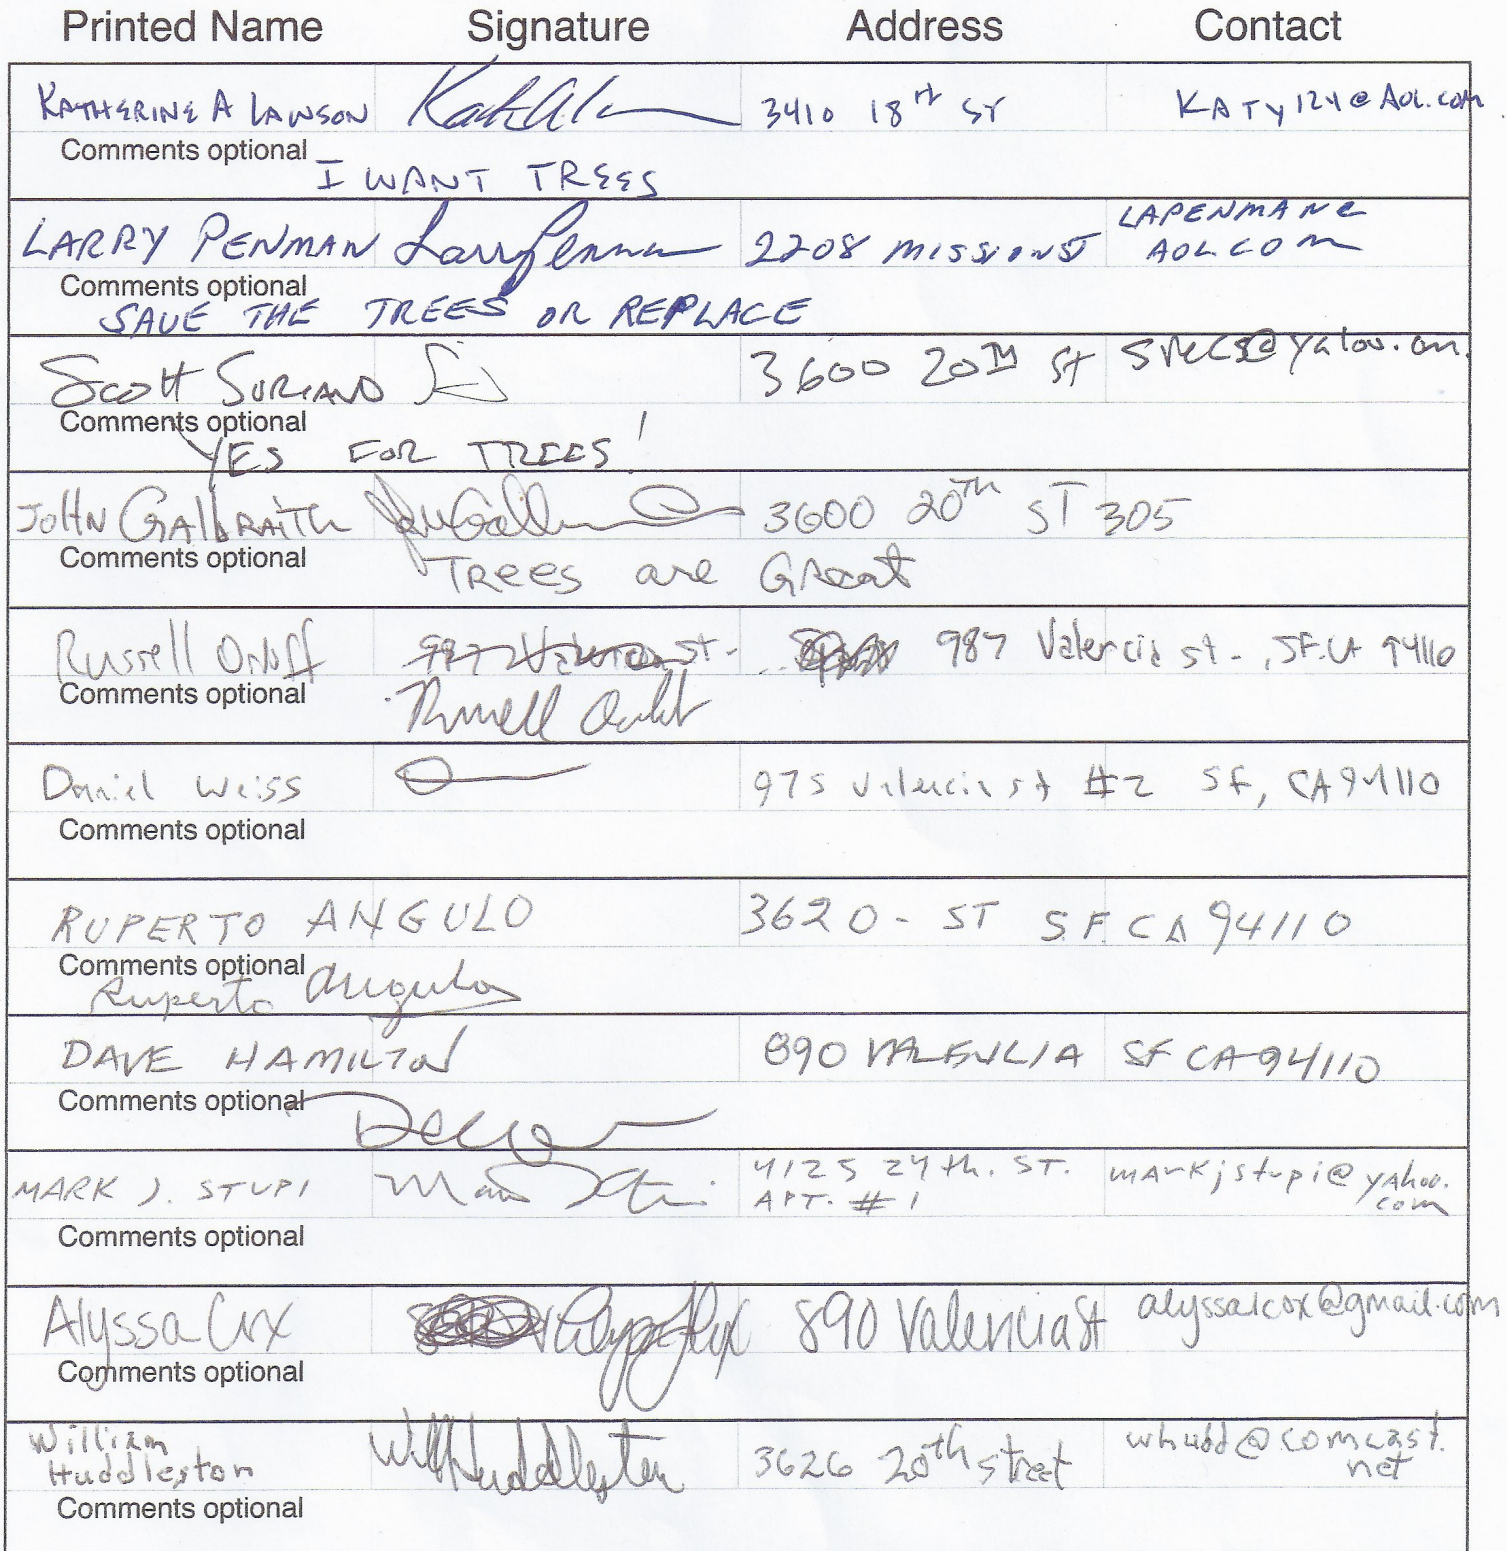 Printed Name Signature Address Contact
KATHERINE A LAWSON 3410 18th ST KATY124@AOL.COM
Comments optional
I WANT TREES
LARRY PENMAN Larry Penman 2208 MISSION ST LAPENMAN@
AOL.COM
Comments optional
SAVE THE TREES OR REPLACE
Scott SURIANO 3600 20TH St
Comments optional
YES FOR TREES!
JOHN GAlbRAITh John 3600 20TH ST 305
Comments optional
TRees are Great
Russell 987 Valencia st. 987 Valencia st. SF. CA 94110
Comments optional
Russell
Daniel Weiss 975 Valencia st #2 SF, CA 94110
Comments optional
RUPERTO ANGULO 3620 - ST S.F. CA 94110
Comments optional
Ruperto Angulo
DAVE HAMILTON 890 VALENCIA SF CA 94110
Comments optional
MARK J. STUPI 4125 24th. ST. markjstupi@yahoo.
APT. #1 com
Comments optional
Alyssa Cox 890 Valencia St alyssalcox@gmail.com
Comments optional
William
Huddleston Will Huddleston 3626 20th street whudd@comcast.
net
Comments optional